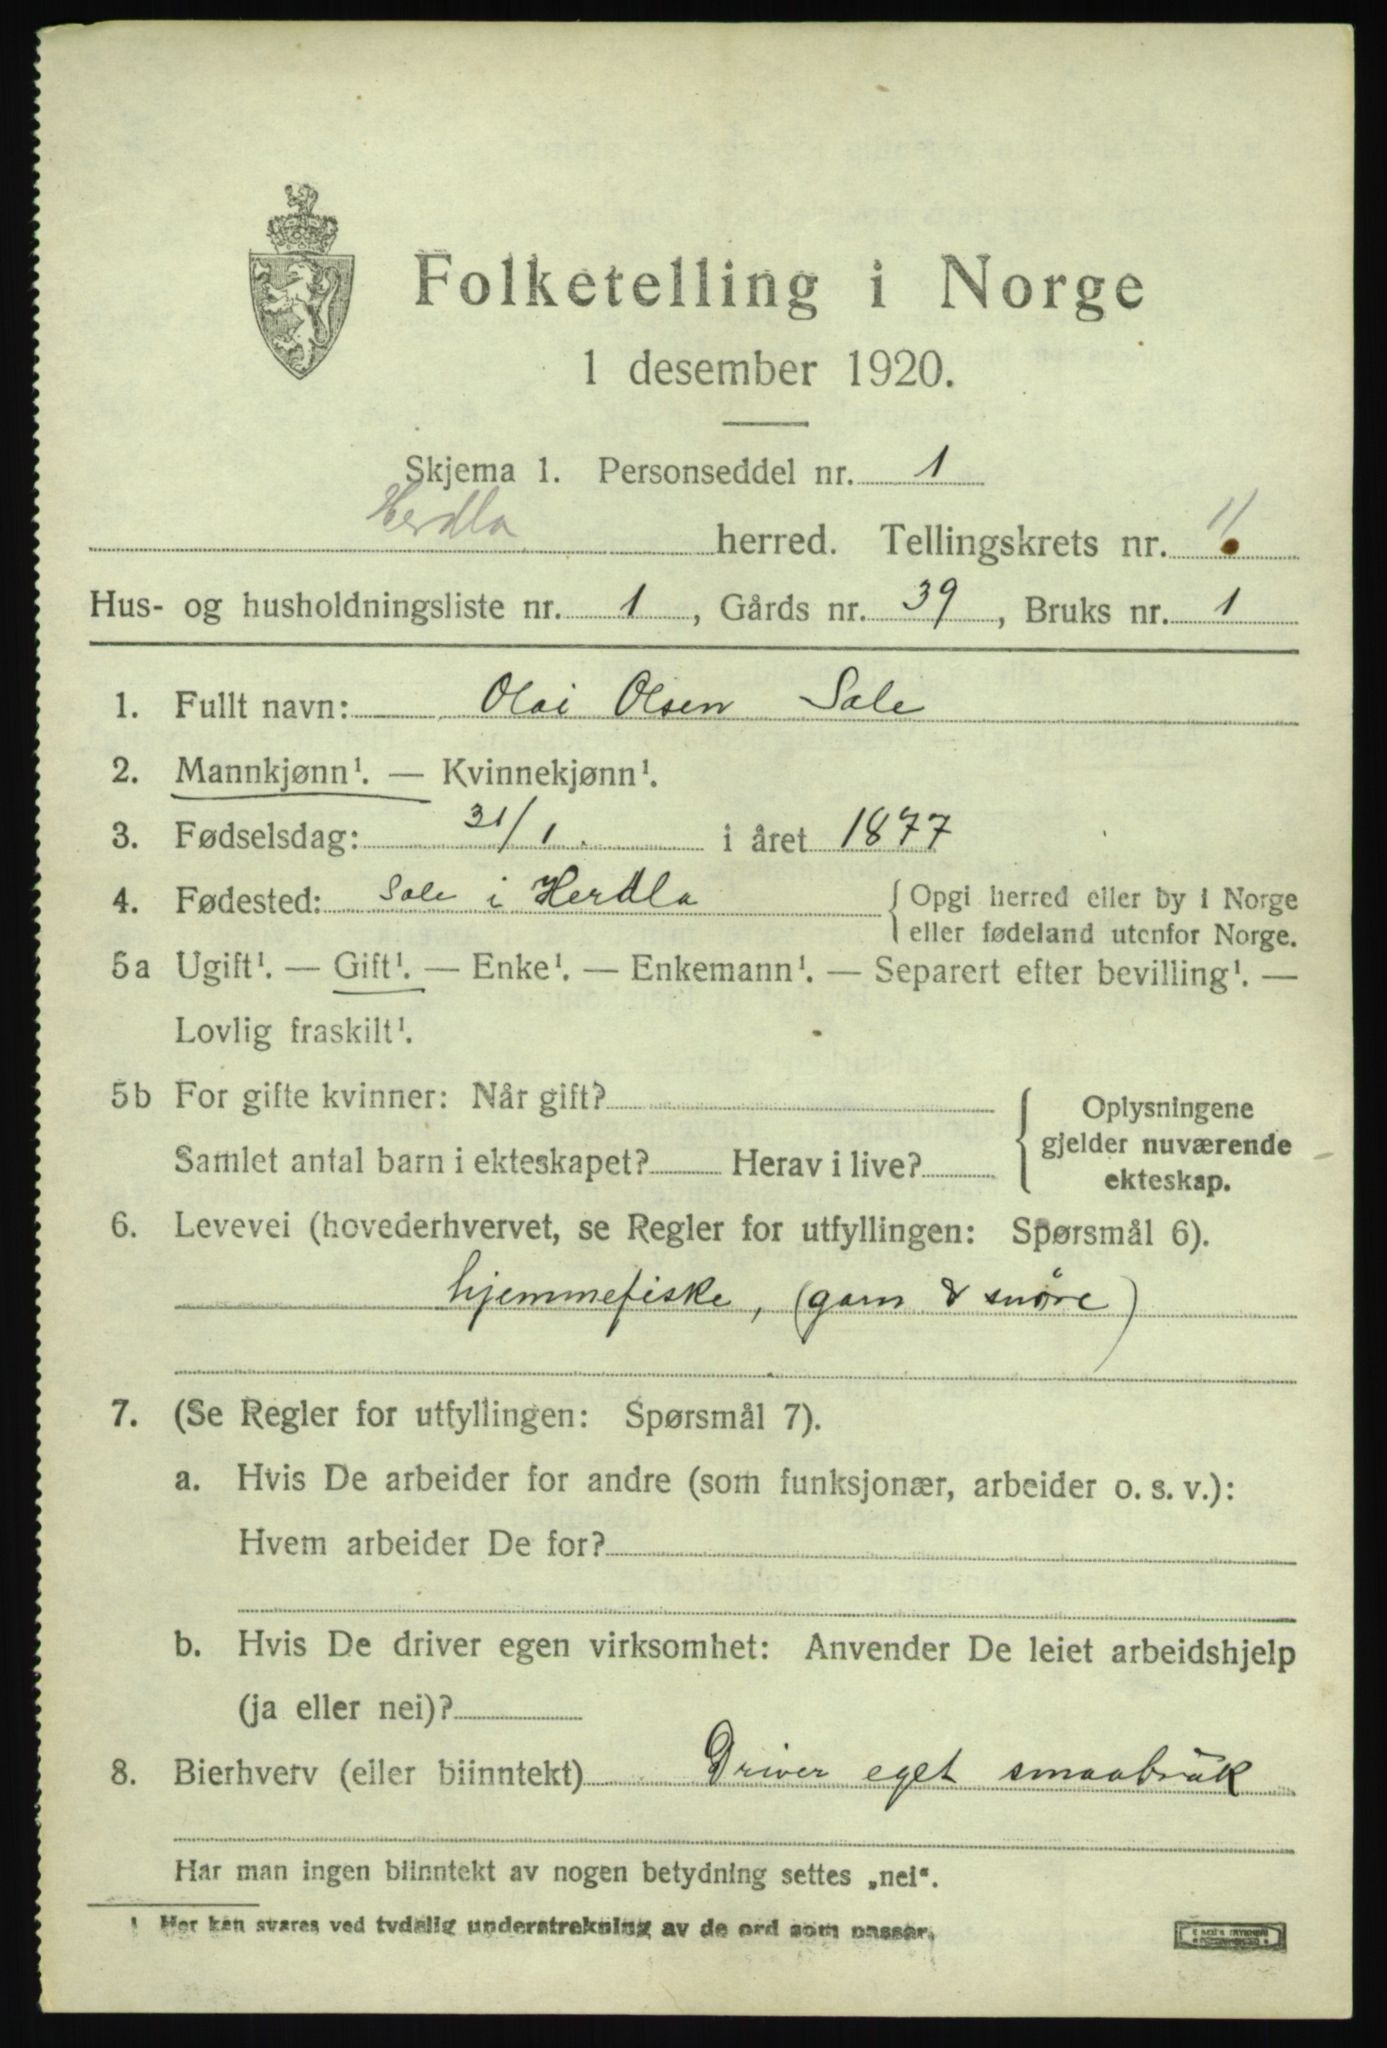 Folketelling i Norge
1 desember 1920.
Skjema 1. Personseddel nr. 1
Herdla herred. Tellingskrets nr. 11
Hus- og husholdningsliste nr. 1, Gårds nr. 39, Bruks nr. 1
1. Fullt navn: Olai Olsen Sale
2. Mannkjønn¹. — Kvinnekjønn¹.
3. Fødselsdag: 31/1. i året 1877
4. Fødested: Sale i Herdla { Opgi herred eller by i Norge
eller fødeland utenfor Norge.
5a Ugift¹. — Gift¹. — Enke¹. — Enkemann¹. — Separert efter bevilling¹. —
Lovlig fraskilt¹.
5b For gifte kvinner: Når gift?
Samlet antal barn i ekteskapet? Herav i live?
{ Oplysningene
gjelder nuværende
ekteskap.
6. Levevei (hovederhvervet, se Regler for utfyllingen: Spørsmål 6).
hjemmefiske, (garn & snöre)
7. (Se Regler for utfyllingen: Spørsmål 7).
a. Hvis De arbeider for andre (som funksjonær, arbeider o. s. v.):
Hvem arbeider De for?
b. Hvis De driver egen virksomhet: Anvender De leiet arbeidshjelp
(ja eller nei)?
8. Bierhverv (eller biinntekt) Driver eget smaabrük
Har man ingen biinntekt av nogen betydning settes „nei“.
1 Her kan svares ved tydelig understrekning av de ord som passer.